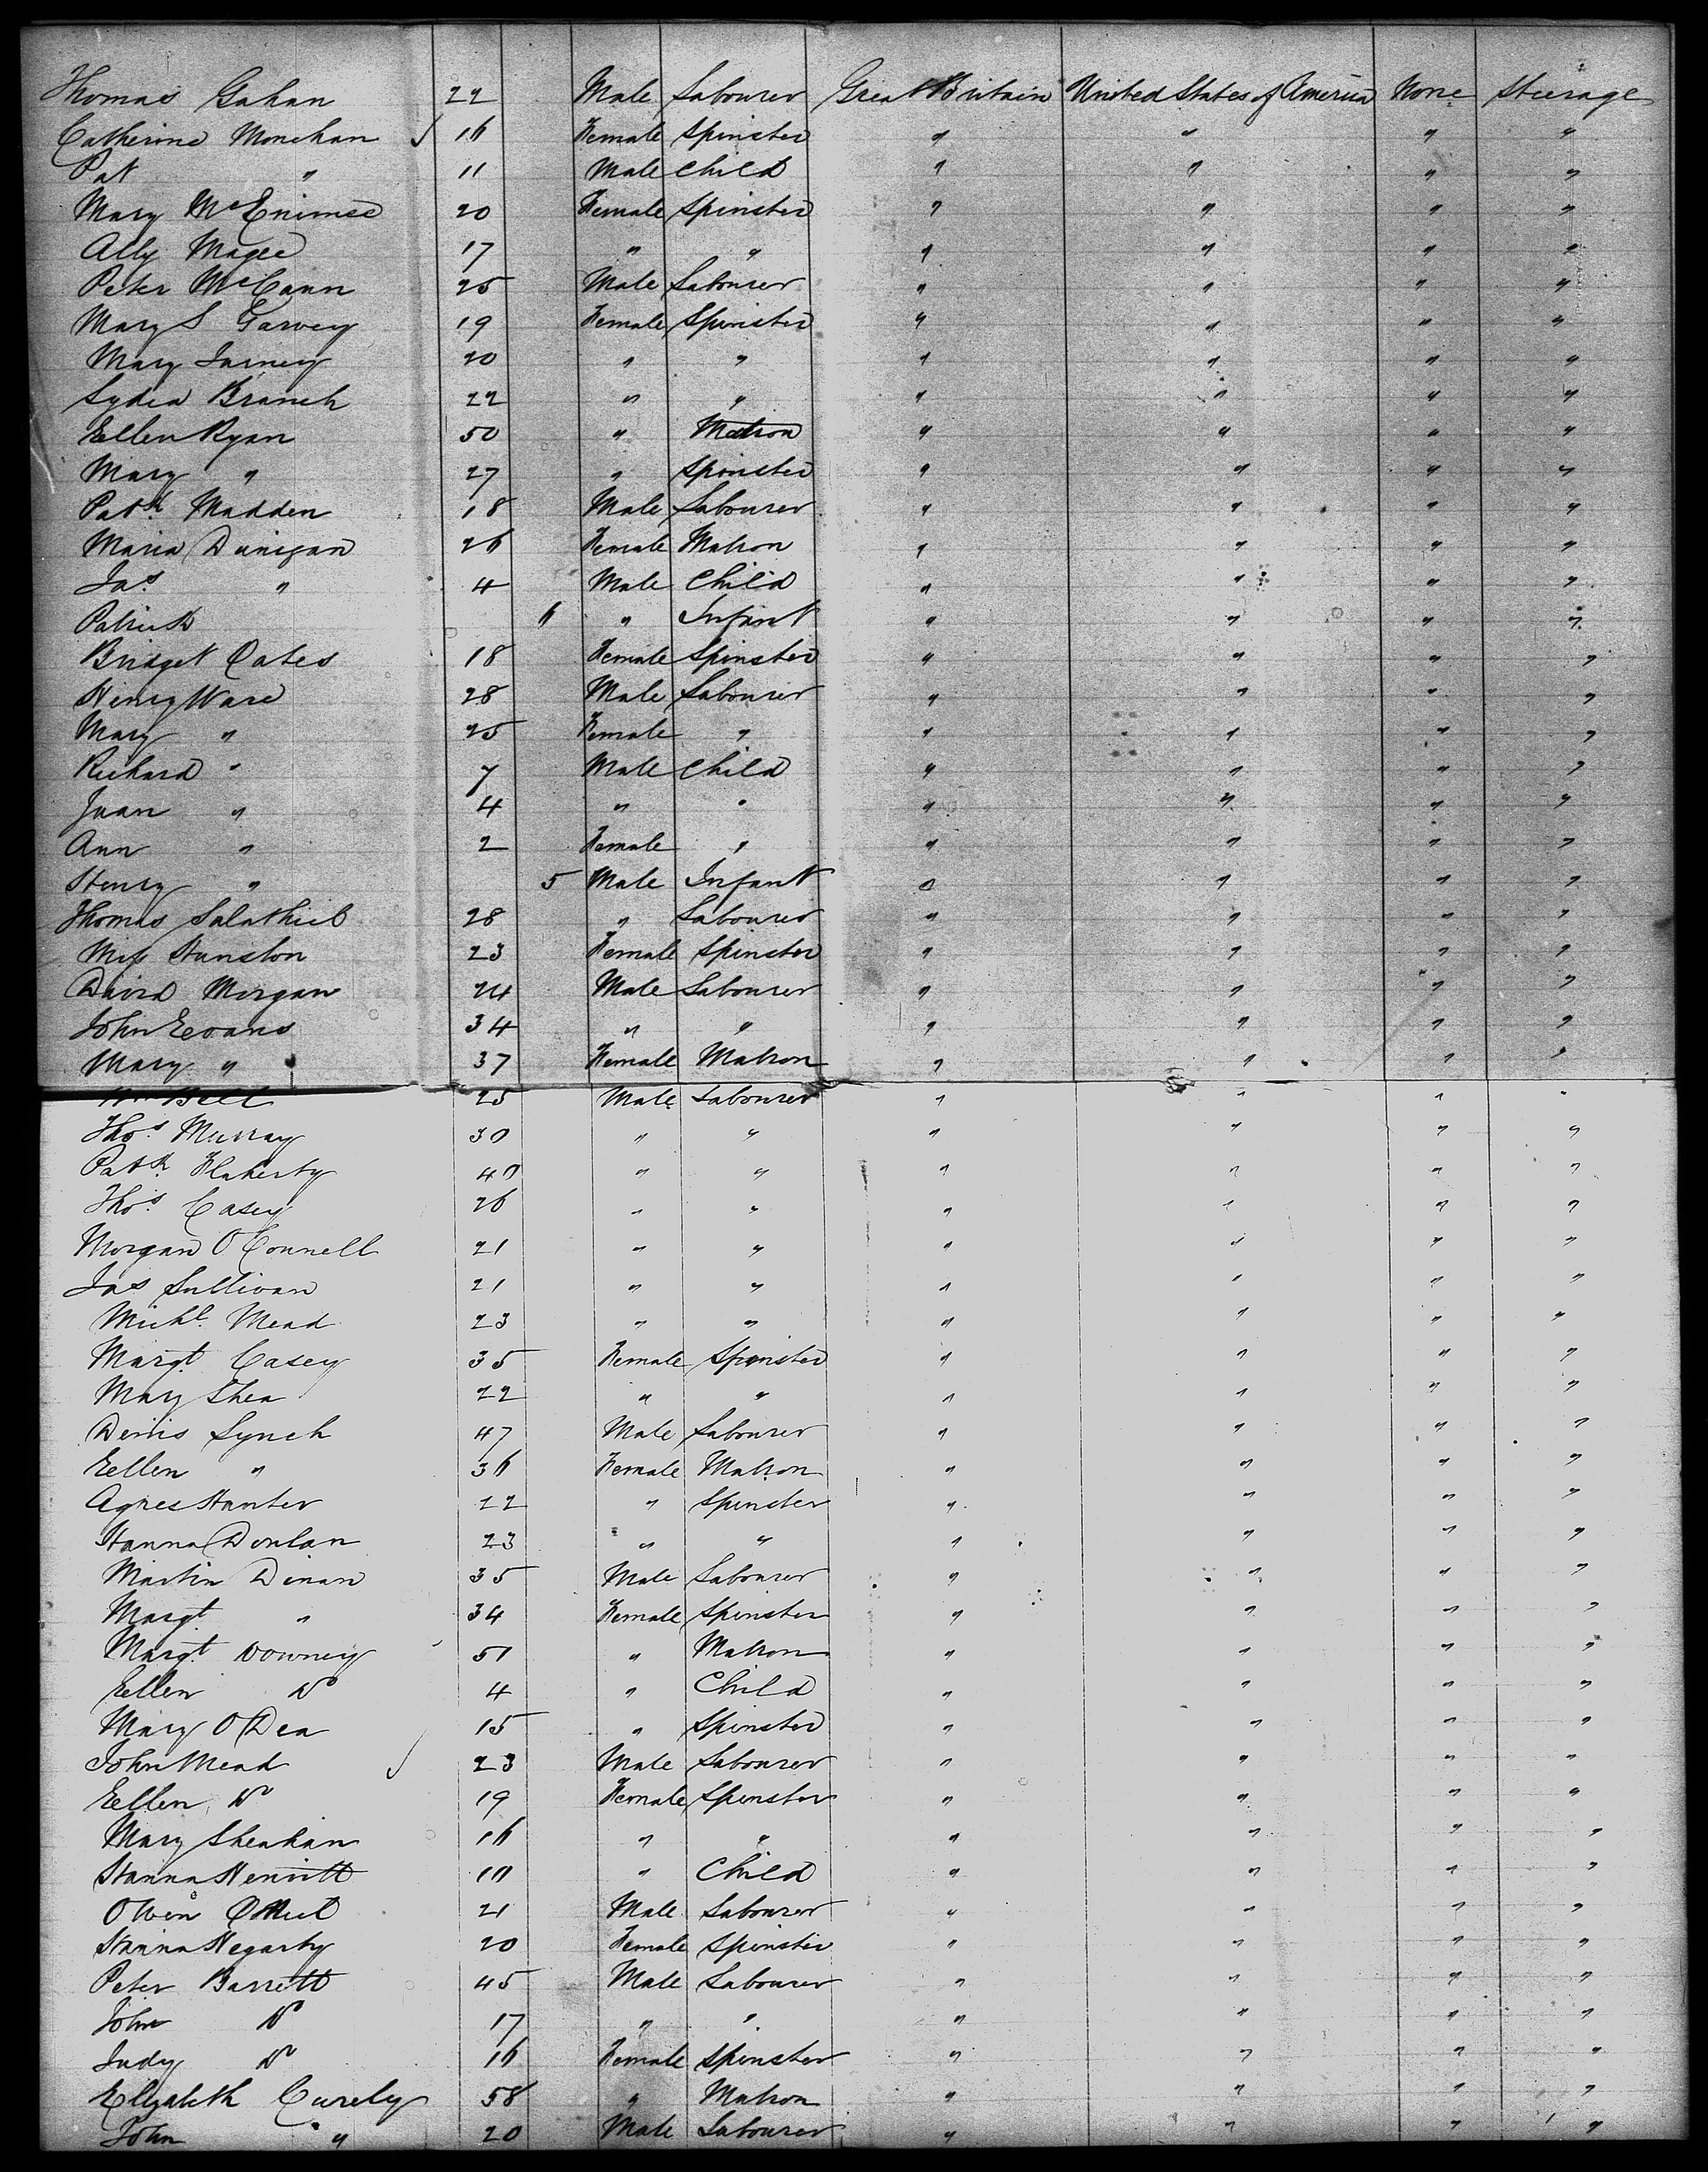 Thomas Gahan 22 Male Labourer Great Britain United States of America None Steerage
Catherine Monehan 16 Female Spinster " " " "
Pat " 11 Male Child " " " "
Mary McEnimee 20 Female Spinster " " " "
Ally Magee 17 " " " " " "
Peter McCann 25 Male Labourer " " " "
Mary S Garvey 19 Female Spinster " " " "
Mary 20 " " " " " "
Lydia Branch 22 " " " " " "
Eellen Ryan 50 " Matron " " " "
Mary " 27 " Spinster " " " "
Patk Madden 18 Male Labourer " " " "
Maria Dunigan 26 Female Matron " " " "
Jas " 4 Male Child " " " "
Patrick 6 " Infant " " " "
Bridget Oates 18 Female Spinster " " " "
Henry Ware 28 Male Labourer " " " "
Mary " 25 Female " " " " "
Richard " 7 Male Child " " " "
Juan " 4 " " " " " "
Ann " 2 Female " " " " "
Henry " 5 Male Infant " " " "
Thomas Salathiel 28 " Labourer " " " "
Miss Hunston 23 Female Spinster " " " "
David Morgan 24 Male Labourer " " " "
John Eevans 34 " " " " " "
Mary " 37 Female Matron " " " "
Wm Bell 25 Male Labourer " " " "
Thos Murray 30 " " " " " "
Patk Flaherty 40 " " " " " "
Thos Casey 26 " " " " " "
Morgan O Connell 21 " " " " " "
Jas Sullivan 21 " " " " " "
Michl Mead 23 " " " " " "
Margt Casey 35 Female Spinster " " " "
Mary Shea 22 " " " " " "
Denis Lynch 47 Male Labourer " " " "
Eellen " 36 Female Matron " " " "
Agnes Hunter 22 " Spinster " " " "
Hanna Donlan 23 " " " " " "
Martin Dinan 35 Male Labourer " " " "
Margt " 34 Female Spinster " " " "
Margt Downey 51 " Matron " " " "
Eellen Do 4 " Child " " " "
Mary O Dea 15 " Spinster " " " "
John Mead 23 Male Labourer " " " "
Eellen Do 19 Female Spinster " " " "
Mary Sheahan 16 " " " " " "
Hanna 10 " Child " " " "
Owen 21 Male Labourer " " " "
Hanna Hegarty 20 Female Spinster " " " "
Peter Barrett 45 Male Labourer " " " "
John Do 17 " " " " " "
Judy Do 16 Female Spinster " " " "
Elizabeth Curely 58 " Matron " " " "
John " 20 Male Labourer " " " "